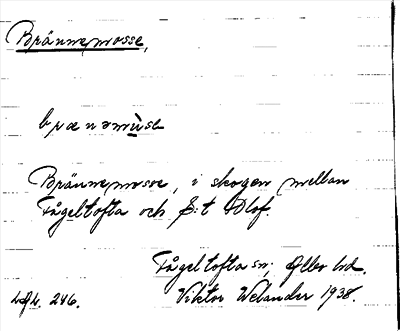 Brännemosse,
brænəmùsε
Brännemosse, i skogen mellan
Fågeltofta och S:t Olof.
Fågeltofta sn, Albo hd.
246. Viktor Welander 1938.